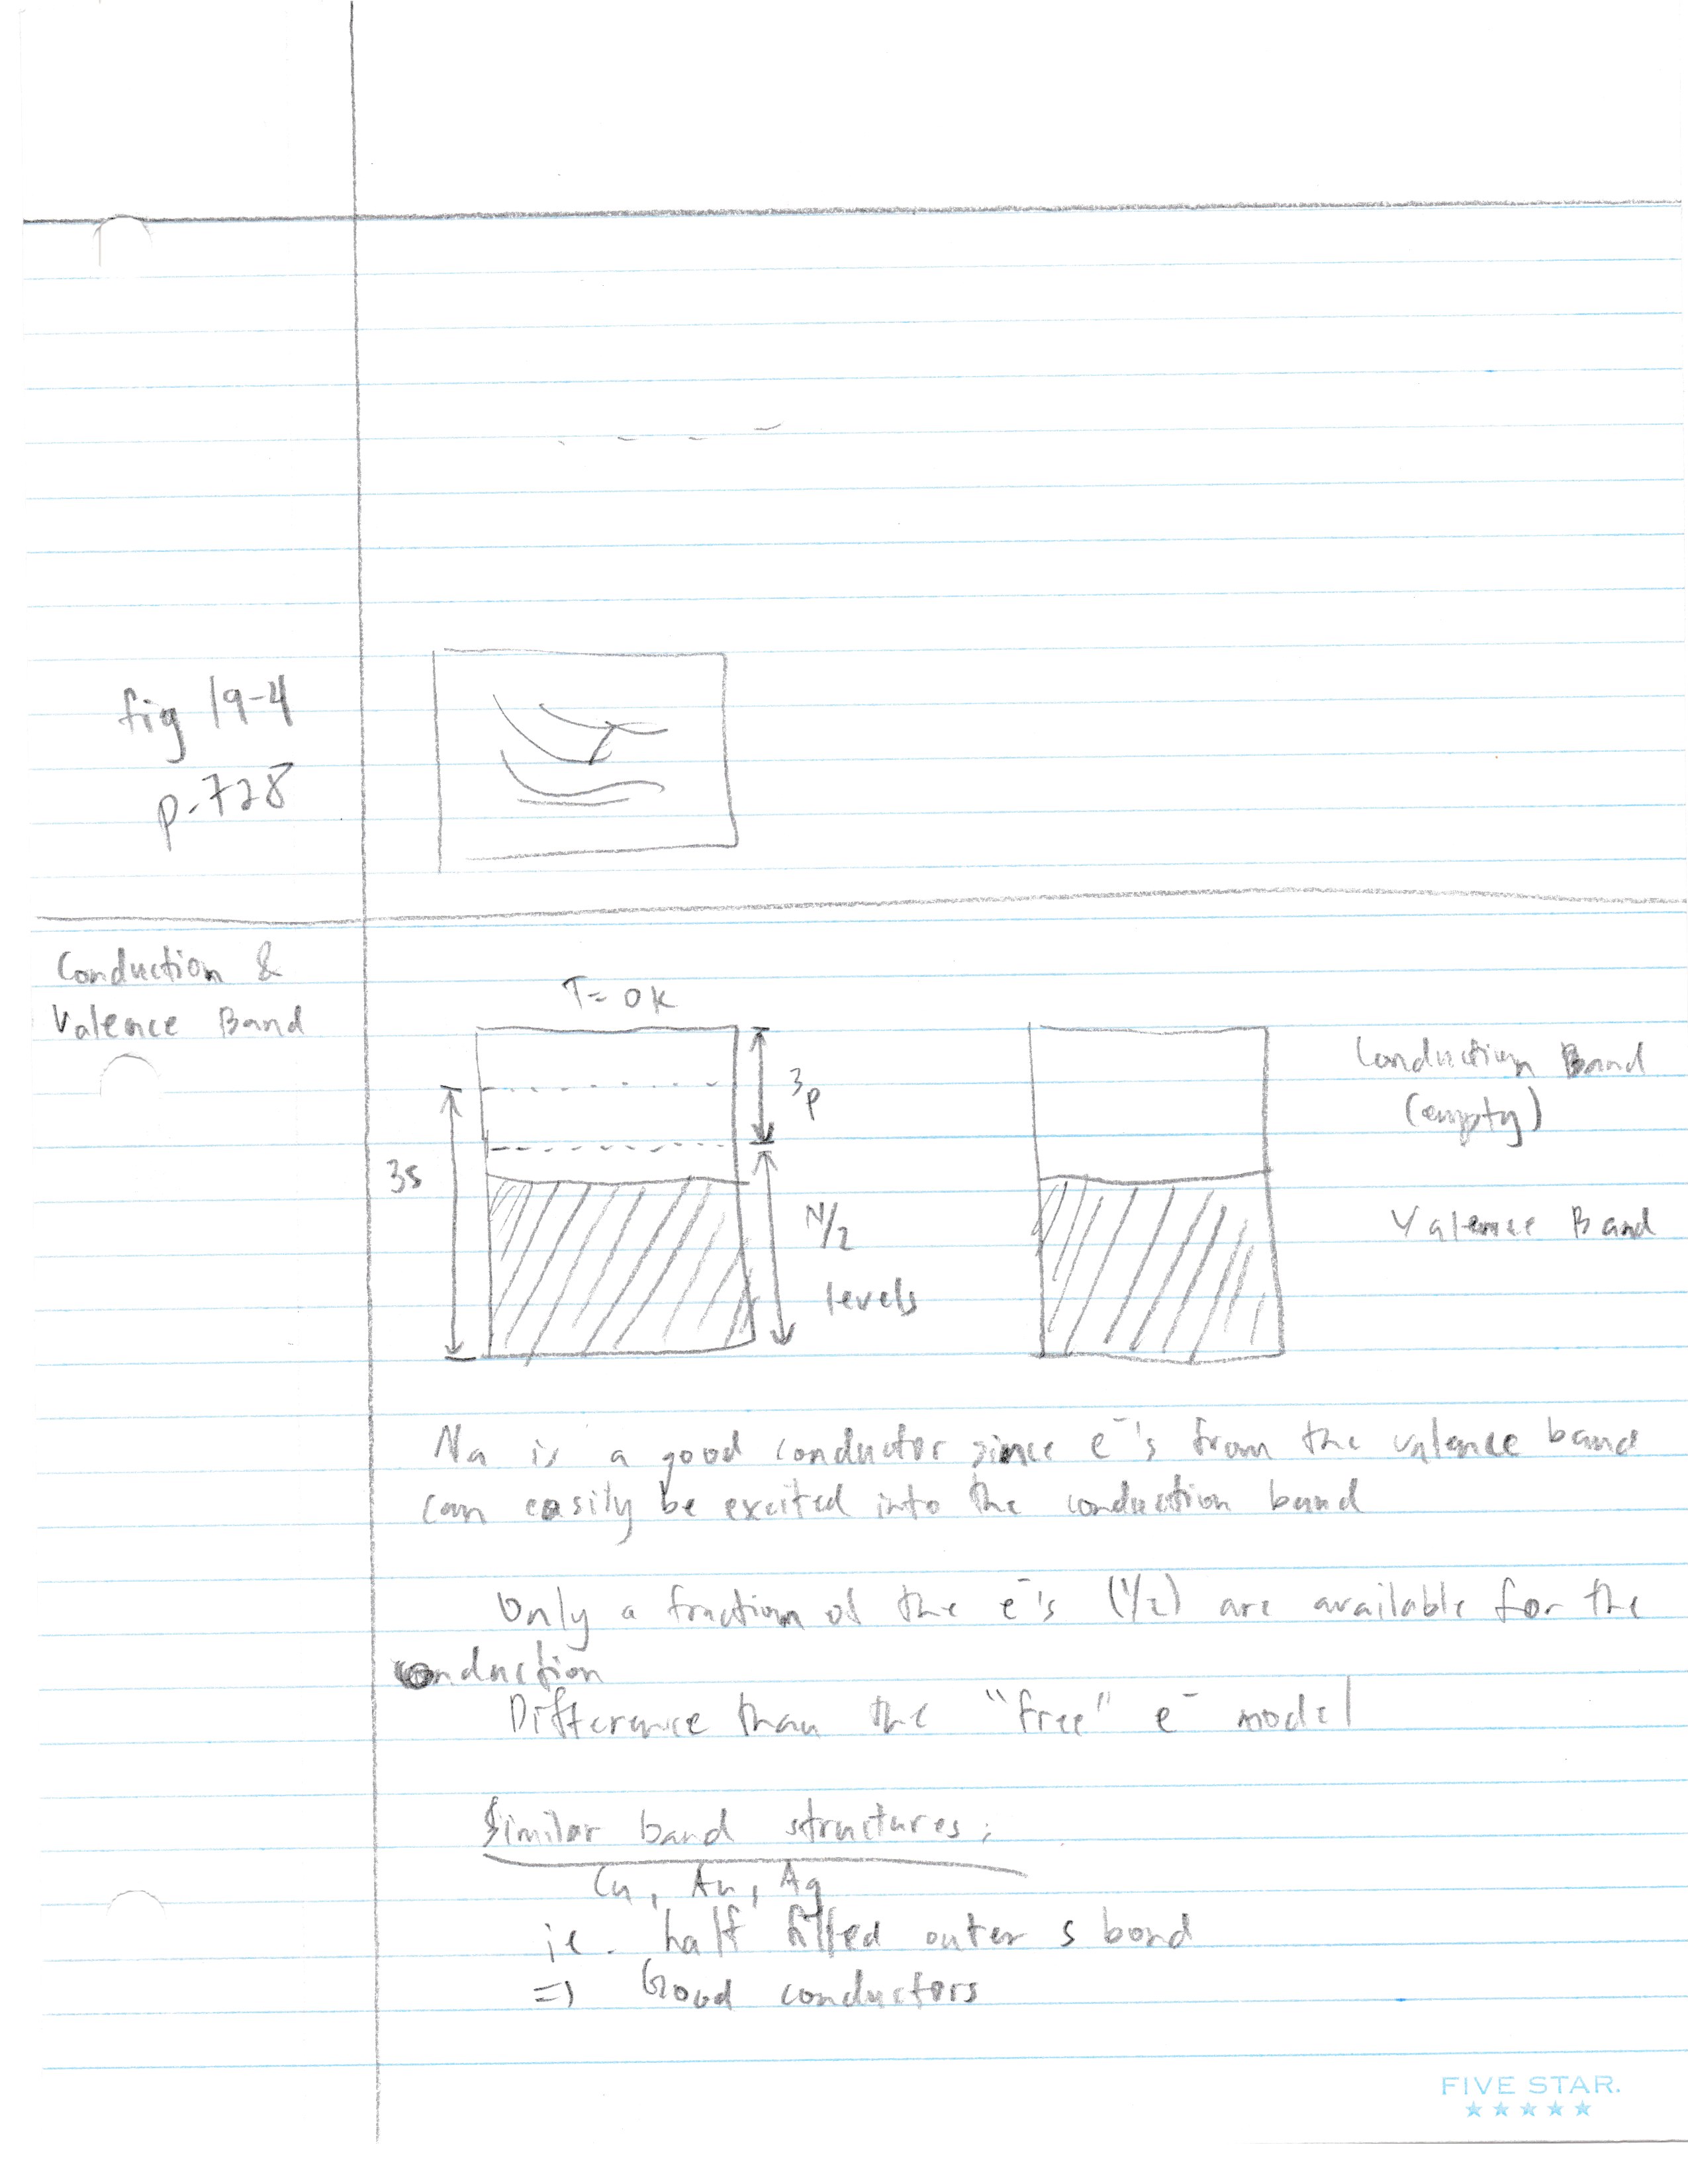 fig 19-4
p-728
Conduction &
Valence Band
T= 0K
3p
3s
N/2
levels
Conduction Band
(empty)
Valence Band
Na is a good conductor since e⁻'s from the valence band
can easily be excited into the conduction band
Only a fraction of the e⁻'s (1/2) are available for the
conduction
Difference than the "free" e⁻ model
Similar band structures:
Cu, Au, Ag
ie. half filled outer s band
=> Good conductors
FIVE STAR.